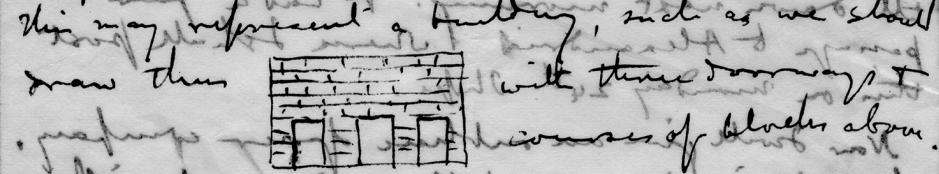 this may represent a building, such as we should
draw thus with three doorways +
courses of blocks above.